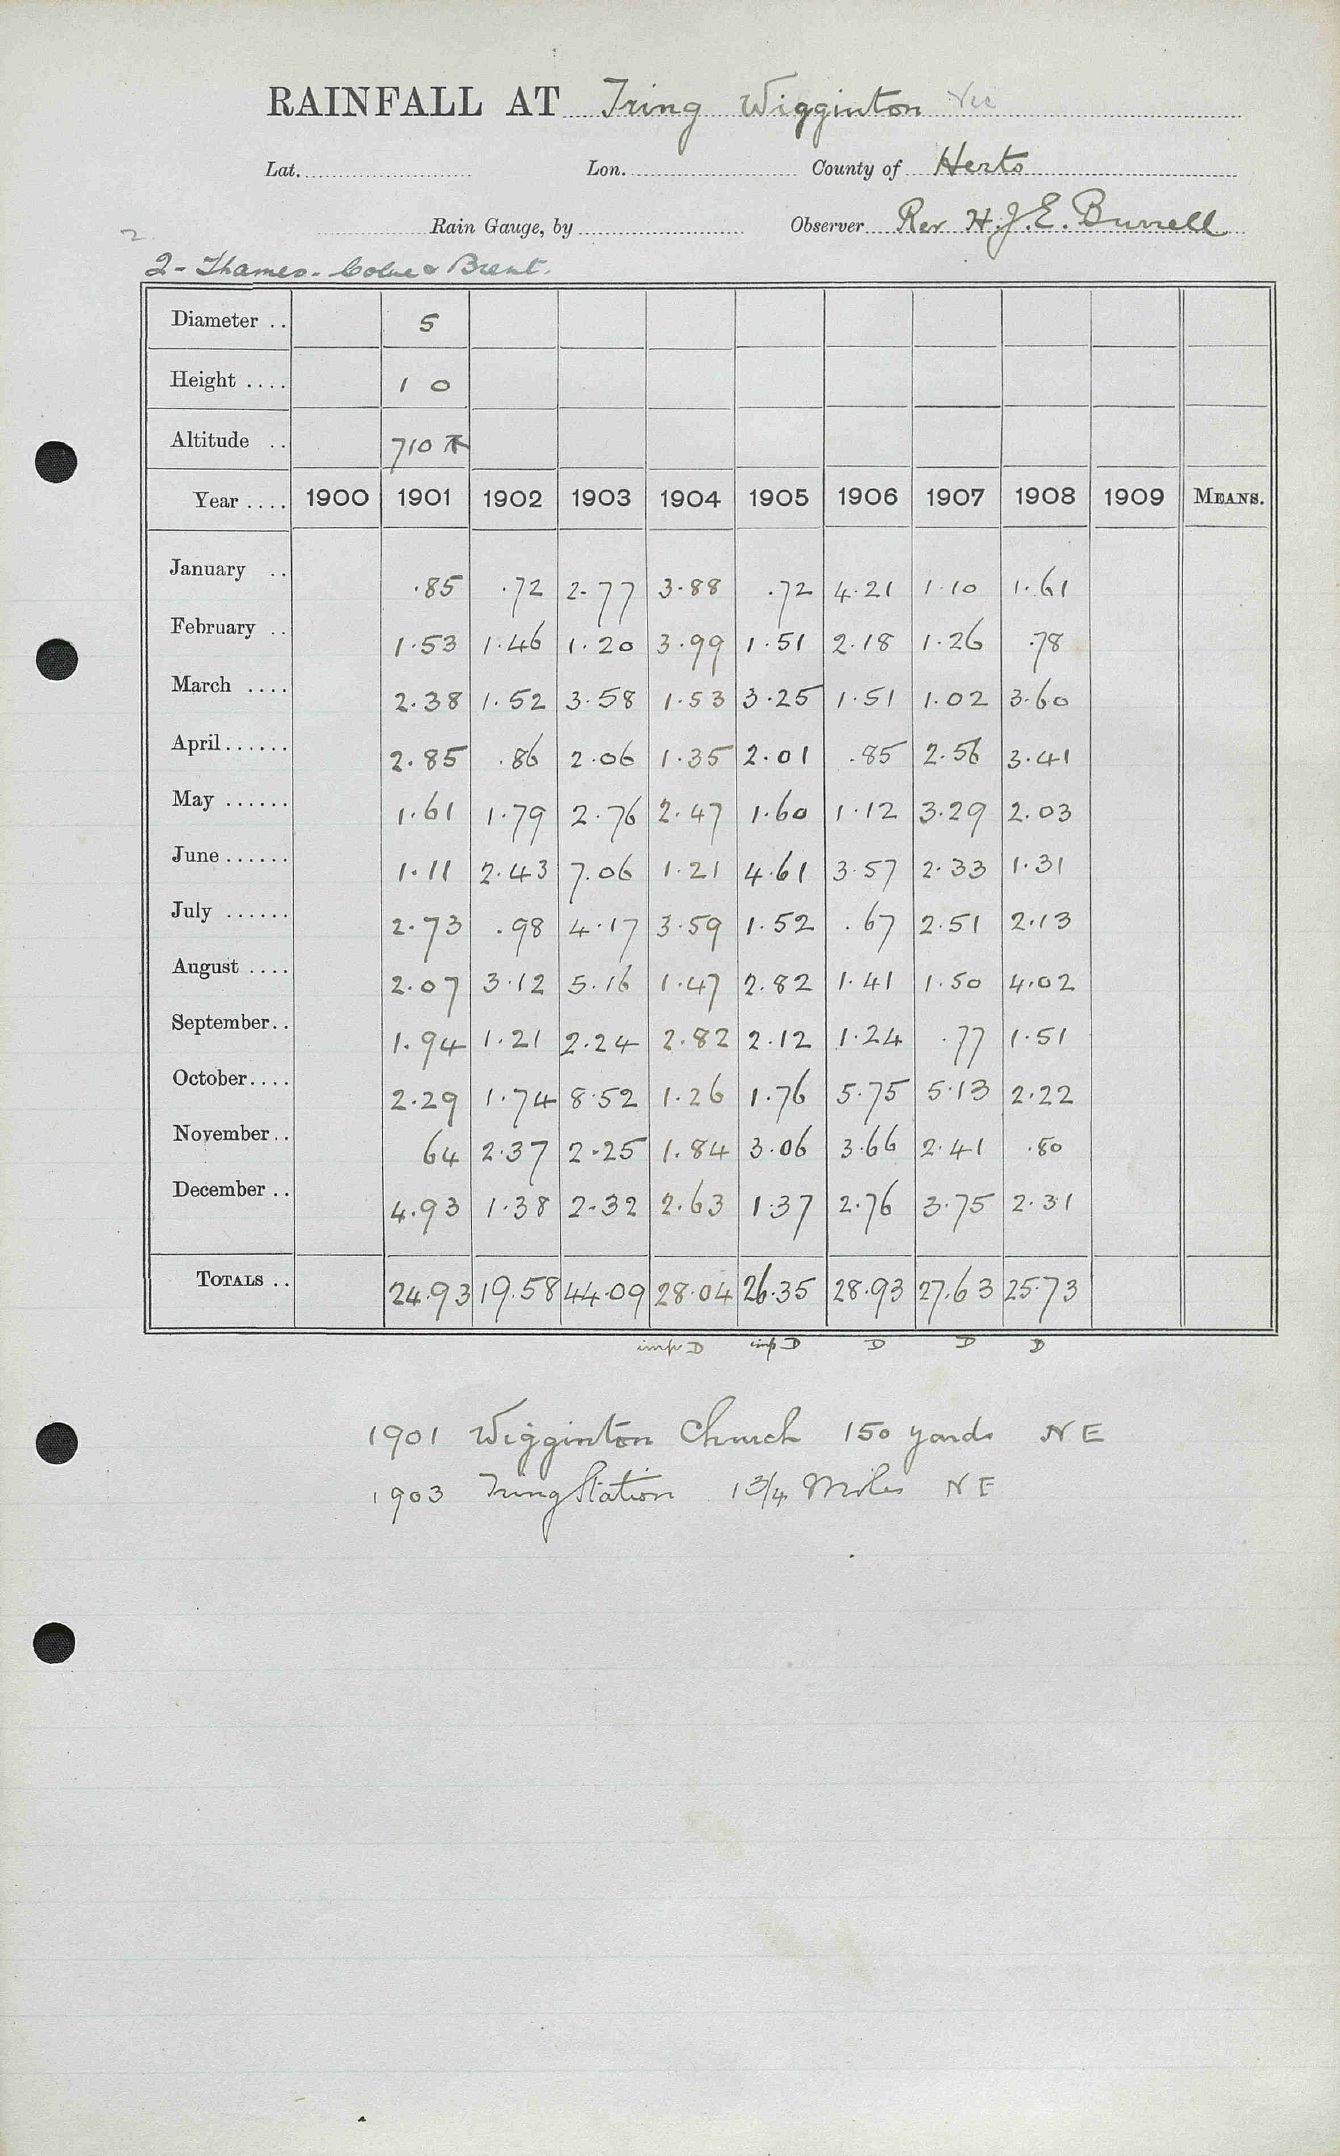 RAINFALL AT Tring Wigginton Vic
Lat. Lon. County of Herts
Rain Gauge, by Observer Rev H.J.E. Burrell
2
2 - Thames - Colne & Brent.
Diameter .. 5
Height .... 1 0
Altitude .. 710
Year .... 1900 1901 1902 1903 1904 1905 1906 1907 1908 1909 MEANS.
January .. .85 .72 2.77 3.88 .72 4.21 1.10 1.61
February .. 1.53 1.46 1.20 3.99 1.51 2.18 1.26 .78
March .... 2.38 1.52 3.58 1.53 3.25 1.51 1.02 3.60
April...... 2.85 .86 2.06 1.35 2.01 .85 2.56 3.41
May ...... 1.61 1.79 2.76 2.47 1.60 1.12 3.29 2.03
June...... 1.11 2.43 7.06 1.21 4.61 3.57 2.33 1.31
July ...... 2.73 .98 4.17 3.59 1.52 .67 2.51 2.13
August .... 2.07 3.12 5.16 1.47 2.82 1.41 1.50 4.02
September.. 1.94 1.21 2.24 2.82 2.12 1.24 .77 1.51
October.... 2.29 1.74 8.52 1.26 1.76 5.75 5.13 2.22
November.. 64 2.37 2.25 1.84 3.06 3.66 2.41 .80
December .. 4.93 1.38 2.32 2.63 1.37 2.76 3.75 2.31
TOTALS .. 24.93 19.58 44.09 28.04 26.35 28.93 27.63 25.73
imp D imp D D D D
1901 Wigginton Church 150 yards NE
1903 Tring Station 1 3/4 Miles NE